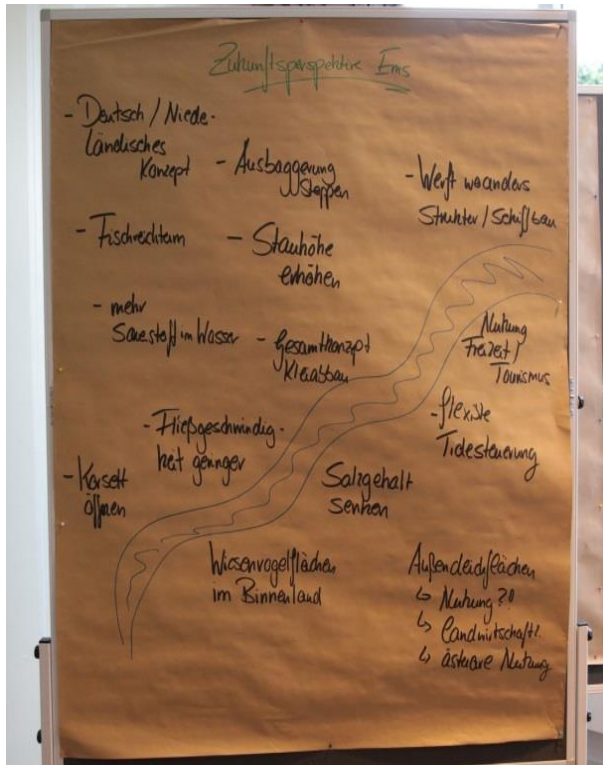 Zukunftsperspektive Ems
- Deutsch / Niede-
ländisches
Konzept
- Ausbaggerung
stoppen
- Werft woanders
Struktur / Schiffbau
- Fischreichtum
- Stauhöhe
erhöhen
- mehr
Sauerstoff im Wasser
- Gesamtkonzept
Kleiabbau
Nutzung
Freizeit /
Tourismus
- Fließgeschwindig-
keit geringer
- flexible
Tidesteuerung
- Korsett
öffnen
Salzgehalt
senken
Wiesenvogelflächen
im Binnenland
Außendeichflächen
↳ Nutzung?!
↳ Landwirtschaft?
↳ Nutzung